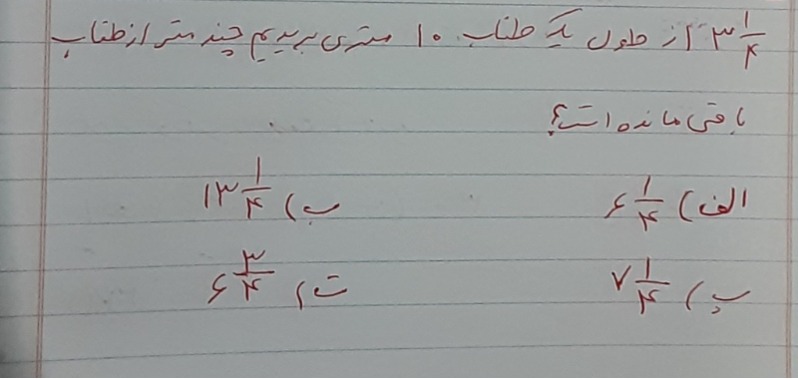 ۳ ۱/۴ از طول یک طناب ۱۰ متری بریدیم چند متر از طناب
باقی مانده است؟
الف) ۶ ۱/۴ ب) ۱۳ ۱/۴
پ) ۷ ۱/۴ ت) ۶ ۳/۴